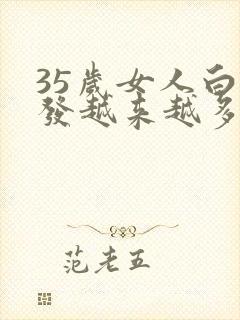 35歲女人白
發越来越多
范老五